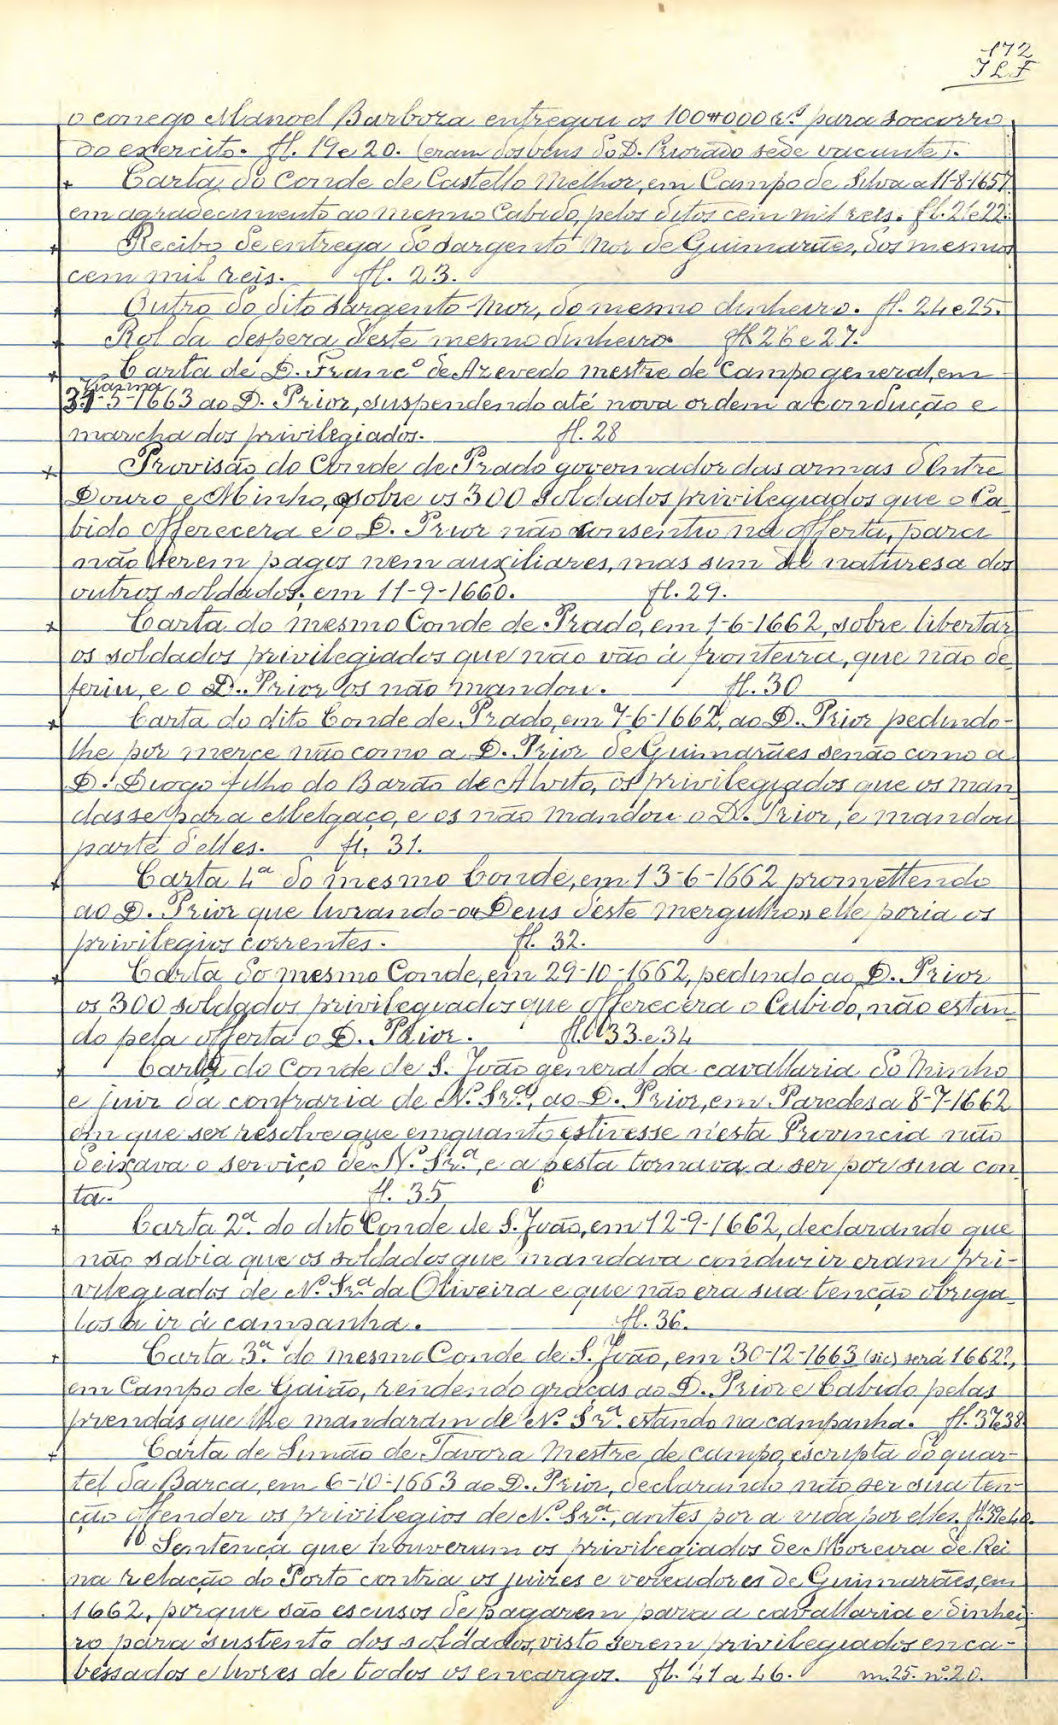 172
J L F
o conego Manoel Barboza entregou os 100#000 rs. para soccorro
do exercito. fl. 19 e 20. (eram dos bens do D. Priorado sede vacante).
+ Carta do Conde de Castello Melhor, em Campo de Silva a 11-8-1657
em agradecimento ao mesmo Cabido, pelos ditos cem mil reis. fl. 21 e 22.
+ Recibo de entrega do sargento mor de Guimarães, dos mesmos
cem mil reis. fl. 23.
+ Outro do dito sargento-mor, do mesmo dinheiro. fl. 24 e 25.
+ Rol da despeza d'este mesmo dinheiro. fl. 26 e 27.
+ Carta de D. Francº de Azevedo mestre de Campo general, em
Vianna
31-5-1663 ao D. Prior, suspendendo até nova ordem a condução e
marcha dos privilegiados. fl. 28
+ Provisão do Conde de Prado governador das armas d'Entre
Douro e Minho, sobre os 300 soldados privilegiados que o Ca-
bido offerecera e o D. Prior não consentio na offerta, para
não serem pagos nem auxiliares, mas sim de naturesa dos
outros soldados; em 11-9-1660. fl. 29.
+ Carta do mesmo Conde de Prado, em 1-6-1662, sobre libertar
os soldados privilegiados que não vão á fronteira, que não de-
feriu, e o D. Prior os não mandou. fl. 30
+ Carta do dito Conde de Prado, em 7-6-1662, ao D. Prior pedindo-
lhe por merce não como a D. Prior de Guimarães senão como a
D. Diogo filho do Barão de Alvito, os privilegiados que os man-
dasse para Melgaço, e os não mandou o D. Prior, e mandou
parte d'elles. fl. 31.
+ Carta 4ª do mesmo Conde, em 13-6-1662 promettendo
ao D. Prior que livrando-o Deus d'este mergulho, elle poria os
privilegios correntes. fl. 32.
+ Carta do mesmo Conde, em 29-10-1662, pedindo ao D. Prior
os 300 soldados privilegiados que offerecera o Cabido, não estan-
do pela offerta o D. Prior. fl. 33 e 34
+ Carta do Conde de S. João general da cavallaria do Minho
e juiz da confraria de N. Srª, ao D. Prior, em Paredes a 8-7-1662
em que se resolve que emquanto estivesse n'esta Provincia não
deixava o serviço de N. Srª, e a festa tornava a ser por sua con-
ta. fl. 35
+ Carta 2ª do dito Conde de S. João, em 12-9-1662, declarando que
não sabia que os soldados que mandava conduzir eram pri-
vilegiados de N. Srª da Oliveira e que não era sua tenção obriga-
los a ir á campanha. fl. 36.
+ Carta 3ª do mesmo Conde de S. João, em 30-12-1663 (sic) será 1662?,
em Campo de Gaião, rendendo graças ao D. Prior e Cabido pelas
prendas que lhe mandaram de N. Srª estando na campanha. fl. 37 e 38
+ Carta de Simão de Tavora Mestre de campo, escripta do quar-
tel da Barca, em 6-10-1663 ao D. Prior, declarando não ser sua ten-
ção offender os privilegios de N. Srª, antes por a vida por elles. fl. 39 e 40.
Sentença que houveram os privilegiados de Moreira de Rei
na relação do Porto contra os juizes e vereadores de Guimarães, em
1662, porque são escusos de pagarem para a cavallaria e dinhei-
ro para sustento dos soldados, visto serem privilegiados enca-
bessados e livres de todos os encargos. fl. 41 a 46. m. 25. nº 20.